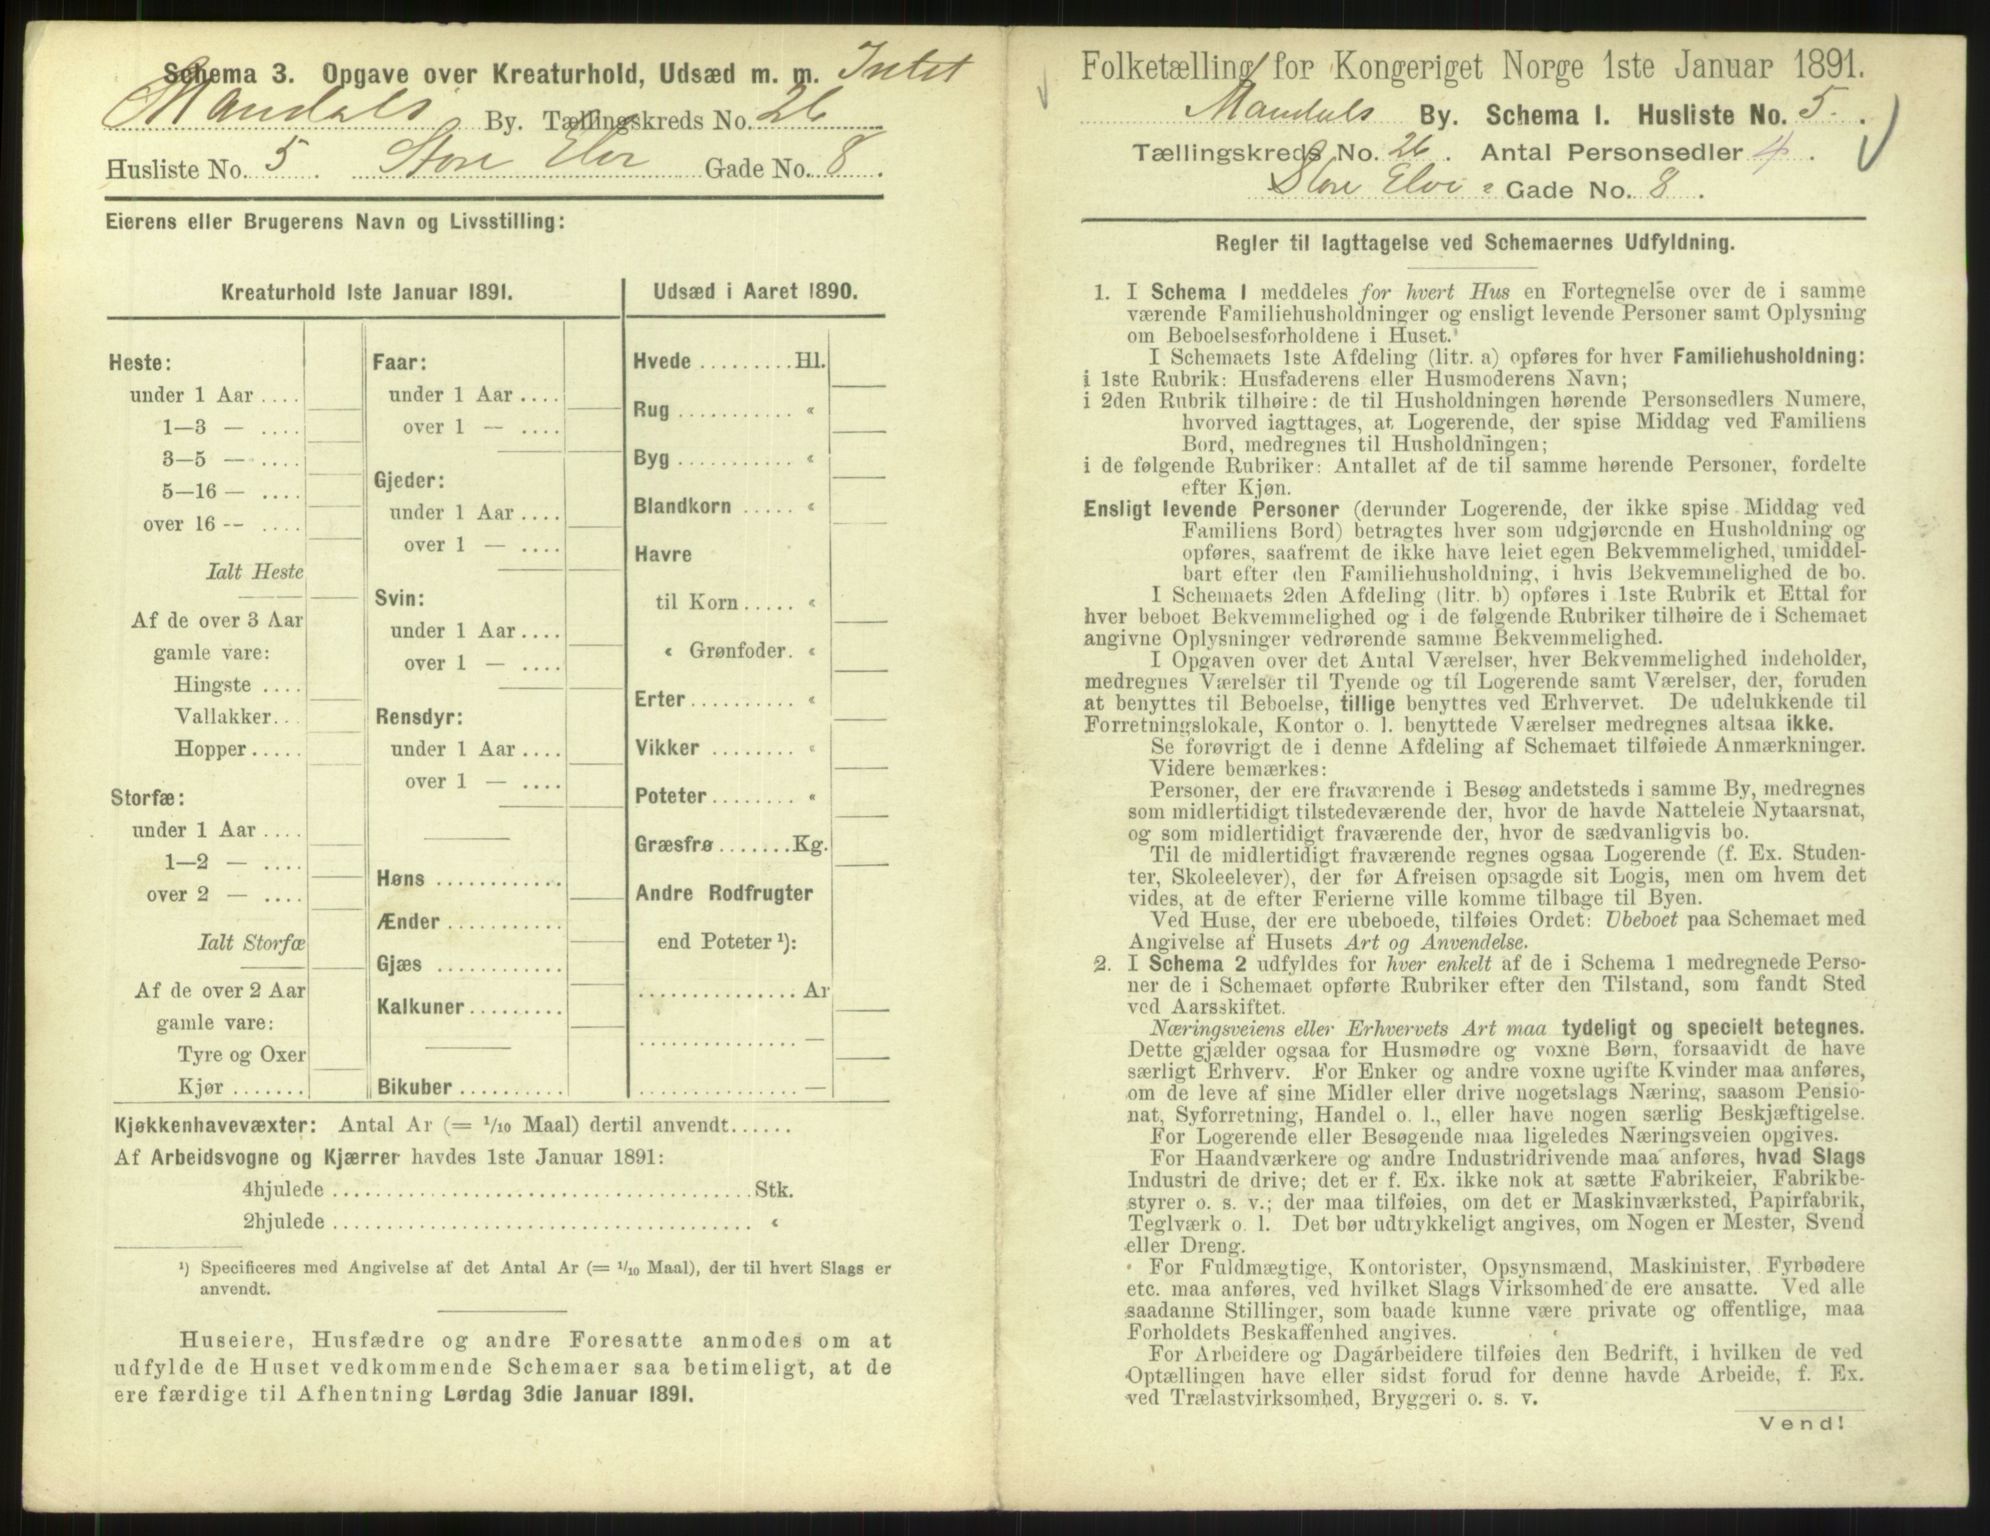 Schema 3. Opgave over Kreaturhold, Udsæd m. m. Intet
Mandals By. Tællingskreds No. 26
Husliste No. 5 Store Elve Gade No. 8.
Eierens eller Brugerens Navn og Livsstilling:
Kreaturhold 1ste Januar 1891.
Heste:
under 1 Aar ....
1—3 — ....
3—5 — ....
5—16 — ....
over 16 -- ....
Ialt Heste
Af de over 3 Aar
gamle vare:
Hingste ....
Vallakker...
Hopper.....
Storfæ:
under 1 Aar ....
1—2 — ....
over 2 — ....
Ialt Storfæ
Af de over 2 Aar
gamle vare:
Tyre og Oxer
Kjør .......
Faar:
under 1 Aar ....
over 1 — ....
Gjeder:
under 1 Aar ....
over 1 — ....
Svin:
under 1 Aar ....
over 1 — ....
Rensdyr:
under 1 Aar ....
over 1 — ....
Høns ............
Ænder ...........
Gjæs ............
Kalkuner .........
Bikuber ..........
Udsæd i Aaret 1890.
Hvede ......... Hl.
Rug ........... «
Byg ........... «
Blandkorn ..... «
Havre
til Korn ..... «
« Grønfoder. «
Erter .......... «
Vikker ........ «
Poteter ........ «
Græsfrø ....... Kg.
Andre Rodfrugter
end Poteter ¹):
............... Ar
............... —
............... —
Kjøkkenhavevæxter: Antal Ar (= 1/10 Maal) dertil anvendt......
Af Arbeidsvogne og Kjærrer havdes 1ste Januar 1891:
4hjulede ........................................ Stk.
2hjulede ........................................ «
¹) Specificeres med Angivelse af det Antal Ar (= 1/10 Maal), der til hvert Slags er
anvendt.
Huseiere, Husfædre og andre Foresatte anmodes om at
udfylde de Huset vedkommende Schemaer saa betimeligt, at de
ere færdige til Afhentning Lørdag 3die Januar 1891.
Folketælling for Kongeriget Norge 1ste Januar 1891.
Mandals By. Schema I. Husliste No. 5.
Tællingskreds No. 26. Antal Personsedler 4.
Store Elve Gade No. 8.
Regler til Iagttagelse ved Schemaernes Udfyldning.
1. I Schema 1 meddeles for hvert Hus en Fortegnelse over de i samme
værende Familiehusholdninger og ensligt levende Personer samt Oplysning
om Beboelsesforholdene i Huset.
I Schemaets 1ste Afdeling (litr. a) opføres for hver Familiehusholdning:
i 1ste Rubrik: Husfaderens eller Husmoderens Navn;
i 2den Rubrik tilhøire: de til Husholdningen hørende Personsedlers Numere,
hvorved iagttages, at Logerende, der spise Middag ved Familiens
Bord, medregnes til Husholdningen;
i de følgende Rubriker: Antallet af de til samme hørende Personer, fordelte
efter Kjøn.
Ensligt levende Personer (derunder Logerende, der ikke spise Middag ved
Familiens Bord) betragtes hver som udgjørende en Husholdning og
opføres, saafremt de ikke have leiet egen Bekvemmelighed, umiddel-
bart efter den Familiehusholdning, i hvis Bekvemmelighed de bo.
I Schemaets 2den Afdeling (litr. b) opføres i 1ste Rubrik et Ettal for
hver beboet Bekvemmelighed og i de følgende Rubriker tilhøire de i Schemaet
angivne Oplysninger vedrørende samme Bekvemmelighed.
I Opgaven over det Antal Værelser, hver Bekvemmelighed indeholder,
medregnes Værelser til Tyende og til Logerende samt Værelser, der, foruden
at benyttes til Beboelse, tillige benyttes ved Erhvervet. De udelukkende til
Forretningslokale, Kontor o. l. benyttede Værelser medregnes altsaa ikke.
Se forøvrigt de i denne Afdeling af Schemaet tilføiede Anmærkninger.
Videre bemærkes:
Personer, der ere fraværende i Besøg andetsteds i samme By, medregnes
som midlertidigt tilstedeværende der, hvor de havde Natteleie Nytaarsnat,
og som midlertidigt fraværende der, hvor de sædvanligvis bo.
Til de midlertidigt fraværende regnes ogsaa Logerende (f. Ex. Studen-
ter, Skoleelever), der før Afreisen opsagde sit Logis, men om hvem det
vides, at de efter Ferierne ville komme tilbage til Byen.
Ved Huse, der ere ubeboede, tilføies Ordet: Ubeboet paa Schemaet med
Angivelse af Husets Art og Anvendelse.
2. I Schema 2 udfyldes for hver enkelt af de i Schema 1 medregnede Perso-
ner de i Schemaet opførte Rubriker efter den Tilstand, som fandt Sted
ved Aarsskiftet.
Næringsveiens eller Erhvervets Art maa tydeligt og specielt betegnes.
Dette gjælder ogsaa for Husmødre og voxne Børn, forsaavidt de have
særligt Erhverv. For Enker og andre voxne ugifte Kvinder maa anføres,
om de leve af sine Midler eller drive nogetslags Næring, saasom Pensio-
nat, Syforretning, Handel o. l., eller have nogen særlig Beskjæftigelse.
For Logerende eller Besøgende maa ligeledes Næringsveien opgives.
For Haandværkere og andre Industridrivende maa anføres, hvad Slags
Industri de drive; det er f. Ex. ikke nok at sætte Fabrikeier, Fabrikbe-
styrer o. s. v.; der maa tilføies, om det er Maskinværksted, Papirfabrik,
Teglværk o. l. Det bør udtrykkeligt angives, om Nogen er Mester, Svend
eller Dreng.
For Fuldmægtige, Kontorister, Opsynsmænd, Maskinister, Fyrbødere
etc. maa anføres, ved hvilket Slags Virksomhed de ere ansatte. Ved alle
saadanne Stillinger, som baade kunne være private og offentlige, maa
Forholdets Beskaffenhed angives.
For Arbeidere og Dagarbeidere tilføies den Bedrift, i hvilken de ved
Optællingen have eller sidst forud for denne havde Arbeide, f. Ex.
ved Trælastvirksomhed, Bryggeri o. s. v.
Vend!